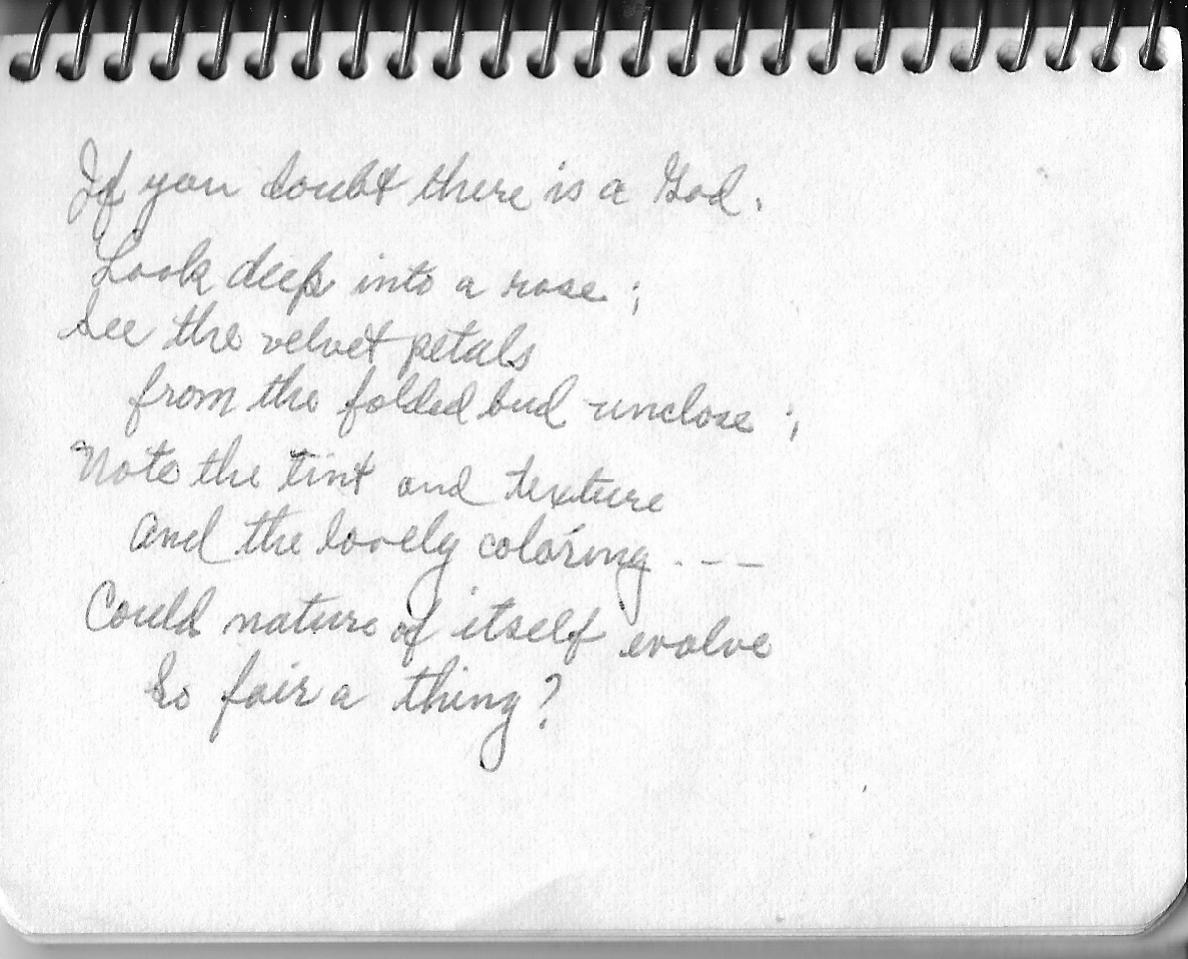 If you doubt there is a God.
Look deep into a rose ;
See the velvet petals
from the folded bud unclose ;
Note the tint and texture
and the lovely coloring . - - -
Could nature of itself evolve
So fair a thing?